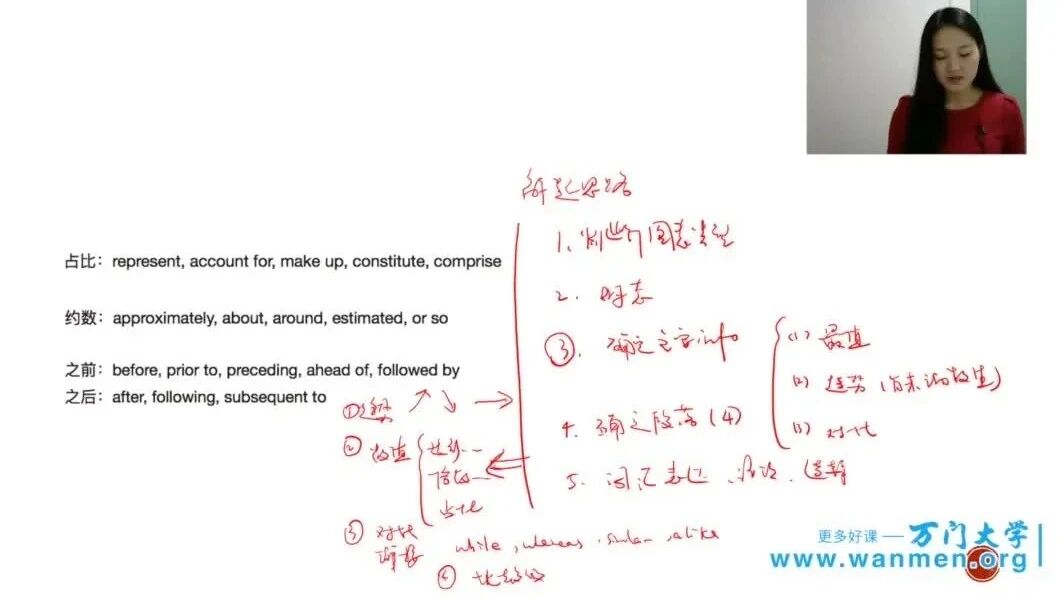 解题思路
占比：represent, account for, make up, constitute, comprise
约数：approximately, about, around, estimated, or so
之前：before, prior to, preceding, ahead of, followed by
之后：after, following, subsequent to
1. 判断图表类型
2. 时态
③. 确定主要info
(1) 最值
(2) 趋势
(3) 对比
4. 确定段落(4)
5. 词汇表达
① 趋势
② 数值
倍数
占比
③ 对比
while, whereas, similar, alike
④
更多好课 — 万门大学
www.wanmen.org